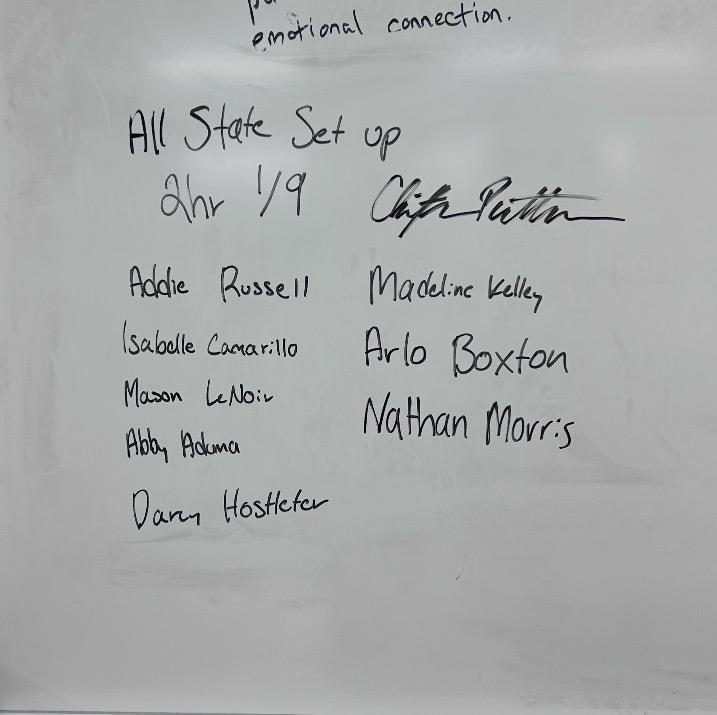 emotional connection.
All State Set up
2hr 1/9
Addie Russell
Isabelle Camarillo
Mason LeNoir
Abby Aduma
Darcy Hostleter
Madeline Kelley
Arlo Boxton
Nathan Morris